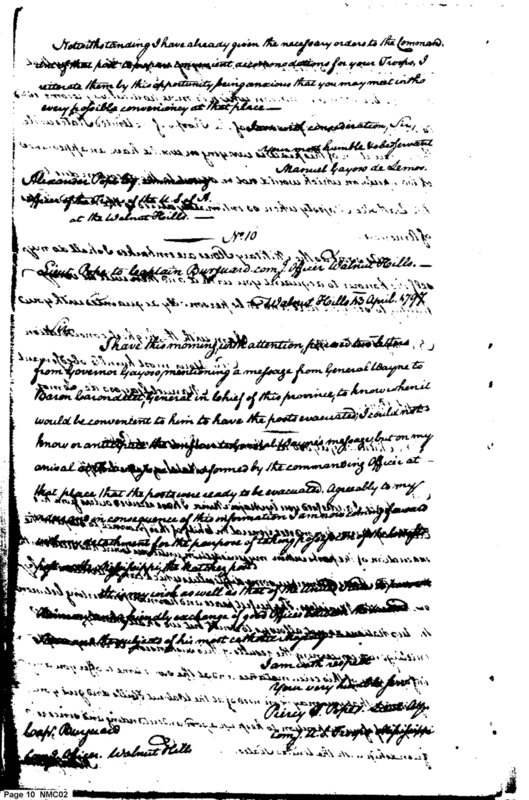 Notwithstanding I have already given the necessary orders to the Command.
ent of that post to prepare convenient accommodations for your Troops, I
reiterate them by this opportunity being anxious that you may meet in the
every possible conveniency at that place —
I am with consideration, Sir,
Your most humble & obedt servant
Manuel Gayoso de Lemos.
Alexander Pope Esq commanding
officer of the Troops of the U.S. of A.
at the Walnut Hills. —
No. 10
Lieut. Pope to Captain Burguard comg Officer Walnut Hills. —
Walnut Hills April 1797.
Sir
I have this morning with attention, perused two letters
from Governor Gayoso, mentioning a message from General Wayne to
Baron Carondelet, General in Chief of this province, to know when it
would be convenient to him to have the posts evacuated, I could not
know or anticipate the answer to General Wayne's message, but on my
arrival informed by the commanding Officer at
that place that the posts were ready to be evacuated. Agreeably to my
in consequence of this information I am now coming forward
with a detachment for the purpose of taking possession of the
posts on the Mississippi, the Natchez post
It is my wish as well as that of the United States to
Harmony and a friendly exchange of good offices between the
and the subjects of his most catholic Majesty
I am with respect
Your very humble servt
Piercy S. Pope
Comg U.S. Troops Mississippi
Capt. Burguard
Comg Officer Walnut Hills
Page 10 NMC02